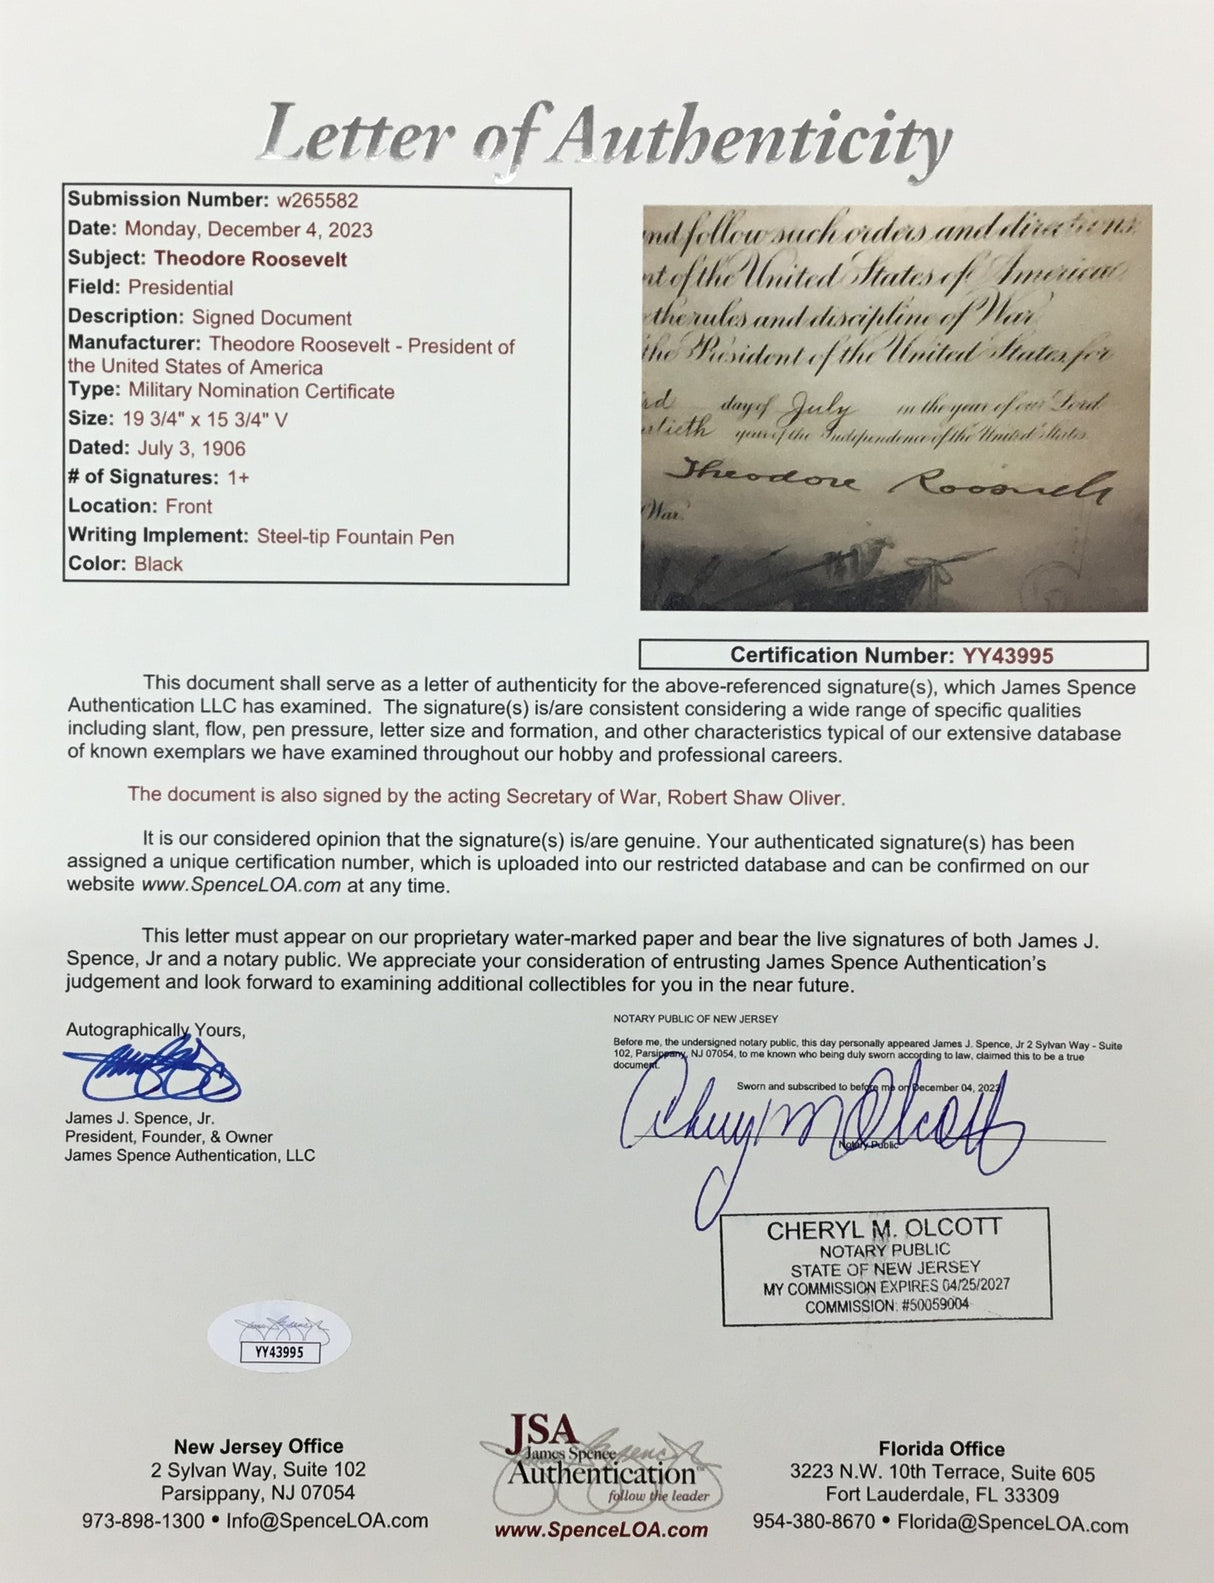 Letter of Authenticity
Submission Number: w265582
Date: Monday, December 4, 2023
Subject: Theodore Roosevelt
Field: Presidential
Description: Signed Document
Manufacturer: Theodore Roosevelt - President of
the United States of America
Type: Military Nomination Certificate
Size: 19 3/4" x 15 3/4" V
Dated: July 3, 1906
# of Signatures: 1+
Location: Front
Writing Implement: Steel-tip Fountain Pen
Color: Black
and follow such orders and directions
nt of the United States of America
the rules and discipline of War.
the President of the United States, for
rd day of July in the year of our Lord
tieth year of the Independence of the United States
Theodore Roosevelt
War.
Certification Number: YY43995
This document shall serve as a letter of authenticity for the above-referenced signature(s), which James Spence
Authentication LLC has examined. The signature(s) is/are consistent considering a wide range of specific qualities
including slant, flow, pen pressure, letter size and formation, and other characteristics typical of our extensive database
of known exemplars we have examined throughout our hobby and professional careers.
The document is also signed by the acting Secretary of War, Robert Shaw Oliver.
It is our considered opinion that the signature(s) is/are genuine. Your authenticated signature(s) has been
assigned a unique certification number, which is uploaded into our restricted database and can be confirmed on our
website www.SpenceLOA.com at any time.
This letter must appear on our proprietary water-marked paper and bear the live signatures of both James J.
Spence, Jr and a notary public. We appreciate your consideration of entrusting James Spence Authentication's
judgement and look forward to examining additional collectibles for you in the near future.
Autographically Yours,
James J. Spence, Jr.
President, Founder, & Owner
James Spence Authentication, LLC
NOTARY PUBLIC OF NEW JERSEY
Before me, the undersigned notary public, this day personally appeared James J. Spence, Jr 2 Sylvan Way - Suite
102, Parsippany, NJ 07054, to me known who being duly sworn according to law, claimed this to be a true
document.
Sworn and subscribed to before me on December 04, 2023
Cheryl M Olcott
Notary Public
CHERYL M. OLCOTT
NOTARY PUBLIC
STATE OF NEW JERSEY
MY COMMISSION EXPIRES 04/25/2027
COMMISSION: #50059004
YY43995
New Jersey Office
2 Sylvan Way, Suite 102
Parsippany, NJ 07054
973-898-1300 • Info@SpenceLOA.com
JSA
James Spence
Authentication™
follow the leader
www.SpenceLOA.com
Florida Office
3223 N.W. 10th Terrace, Suite 605
Fort Lauderdale, FL 33309
954-380-8670 • Florida@SpenceLOA.com